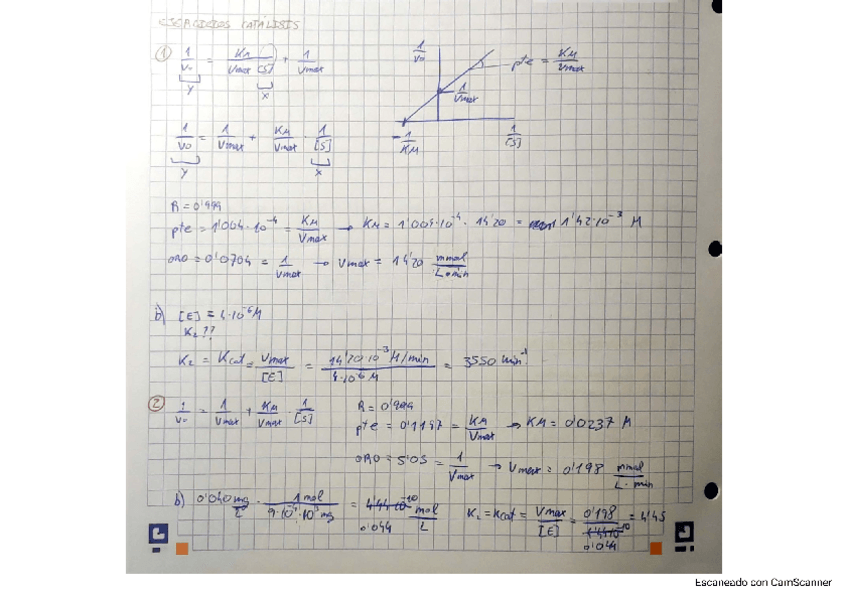 EJERCICIOS CATÁLISIS
① 1/V₀ = KM/(Vmax [S]) + 1/Vmax
y x
1/V₀ pte = KM/Vmax
1/Vmax
-1/KM 1/[S]
1/V₀ = 1/Vmax + KM/Vmax · 1/[S]
y x
R = 0'999
pte = 1'004·10⁻⁴ = KM/Vmax → KM = 1'004·10⁻⁴ · 14'20 = 1'42·10⁻³ M
ORO = 0'0704 = 1/Vmax → Vmax = 14'20 mmol/L·min
b) [E] = 4·10⁻⁶ M
K₂??
K₂ = Kcat = Vmax/[E] = 14'20·10⁻³ M/min / 4·10⁻⁶ M = 3550 min⁻¹
② 1/V₀ = 1/Vmax + KM/Vmax · 1/[S] R = 0'999
pte = 0'1197 = KM/Vmax → KM = 0'0237 M
ORO = 5'05 = 1/Vmax → Vmax = 0'198 mmol/L·min
b) 0'040 mg/L · 1 mol/9·10⁴·10³ mg = 4'44·10⁻¹⁰ mol/L K₂ = Kcat = Vmax/[E] = 0'198/4'44·10⁻¹⁰ = 4'45
0'044 0'044
Escaneado con CamScanner